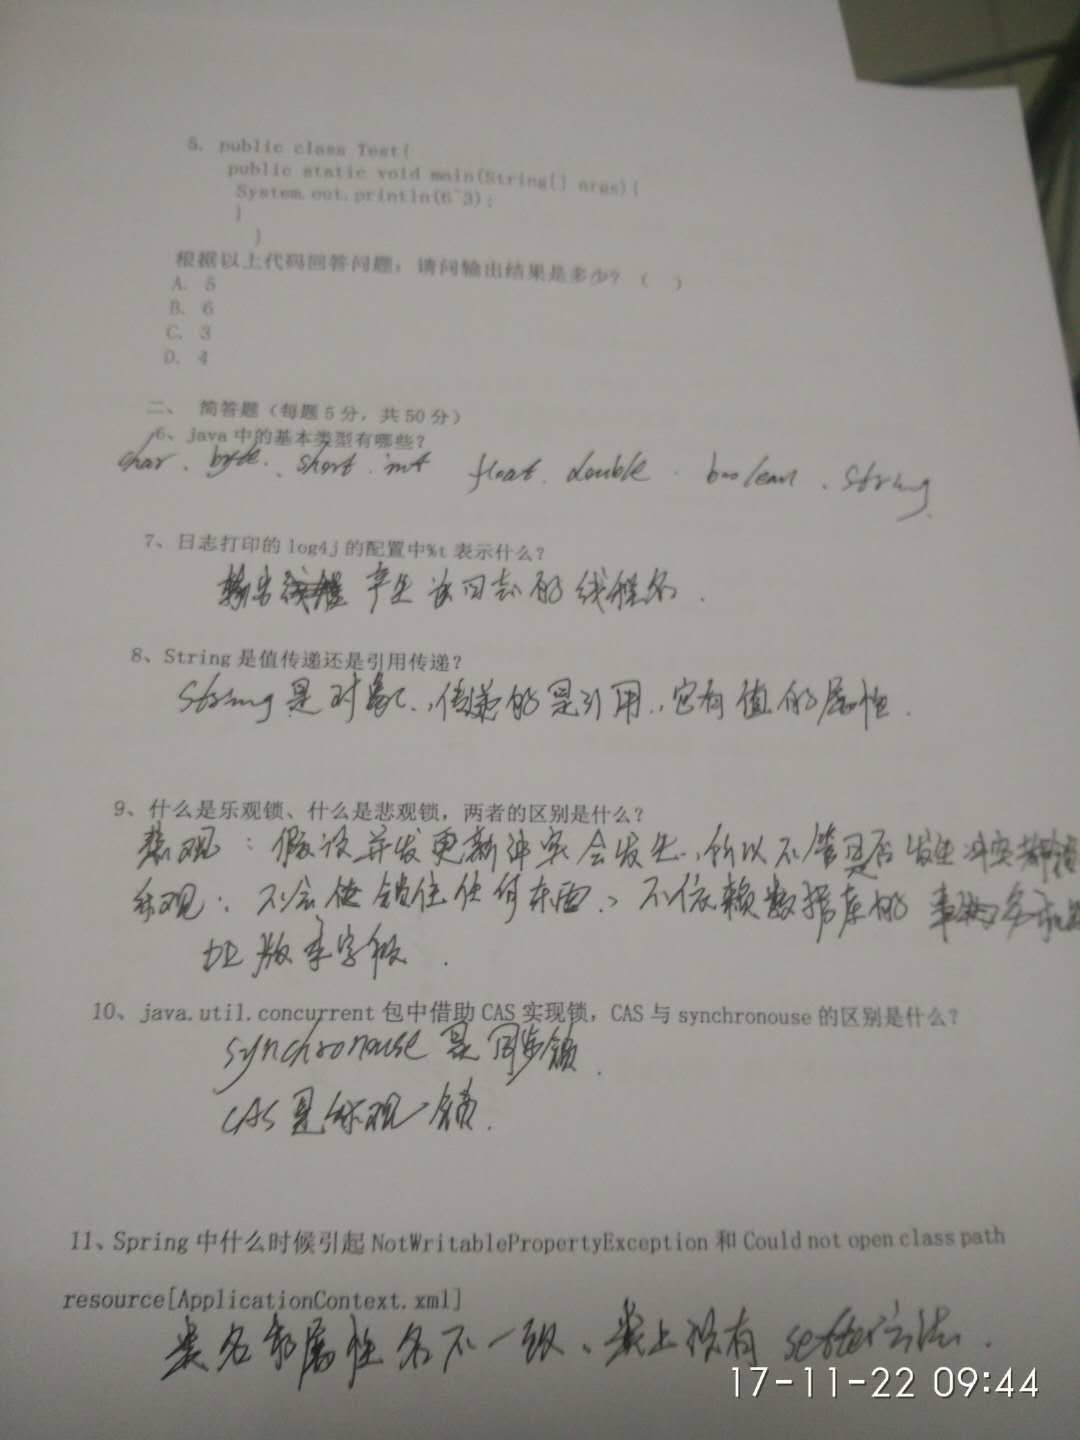 5. public class Test{
public static void main(String[] args){
System.out.println(6^3);
}
}
根据以上代码回答问题，请问输出结果是多少？（ ）
A. 5
B. 6
C. 3
D. 4
二、 简答题（每题5分，共50分）
6、java中的基本类型有哪些？
char、byte、short、int float、double、boolean、string
7、日志打印的log4j的配置中%t表示什么？
产生该日志的线程名.
8、String是值传递还是引用传递？
String是对象，传递的是引用，它有值的属性.
9、什么是乐观锁、什么是悲观锁，两者的区别是什么？
悲观：假设并发更新冲突会发生，所以不管是否发生冲突都
乐观：不会使锁住任何东西，不依赖数据库的
版本字段.
10、java.util.concurrent包中借助CAS实现锁，CAS与synchronouse的区别是什么？
synchronouse是同步锁.
CAS是乐观锁.
11、Spring中什么时候引起NotWritablePropertyException和Could not open class path
resource[ApplicationContext.xml]
类名和属性名不一致、类上没有setter方法.
17-11-22 09:44